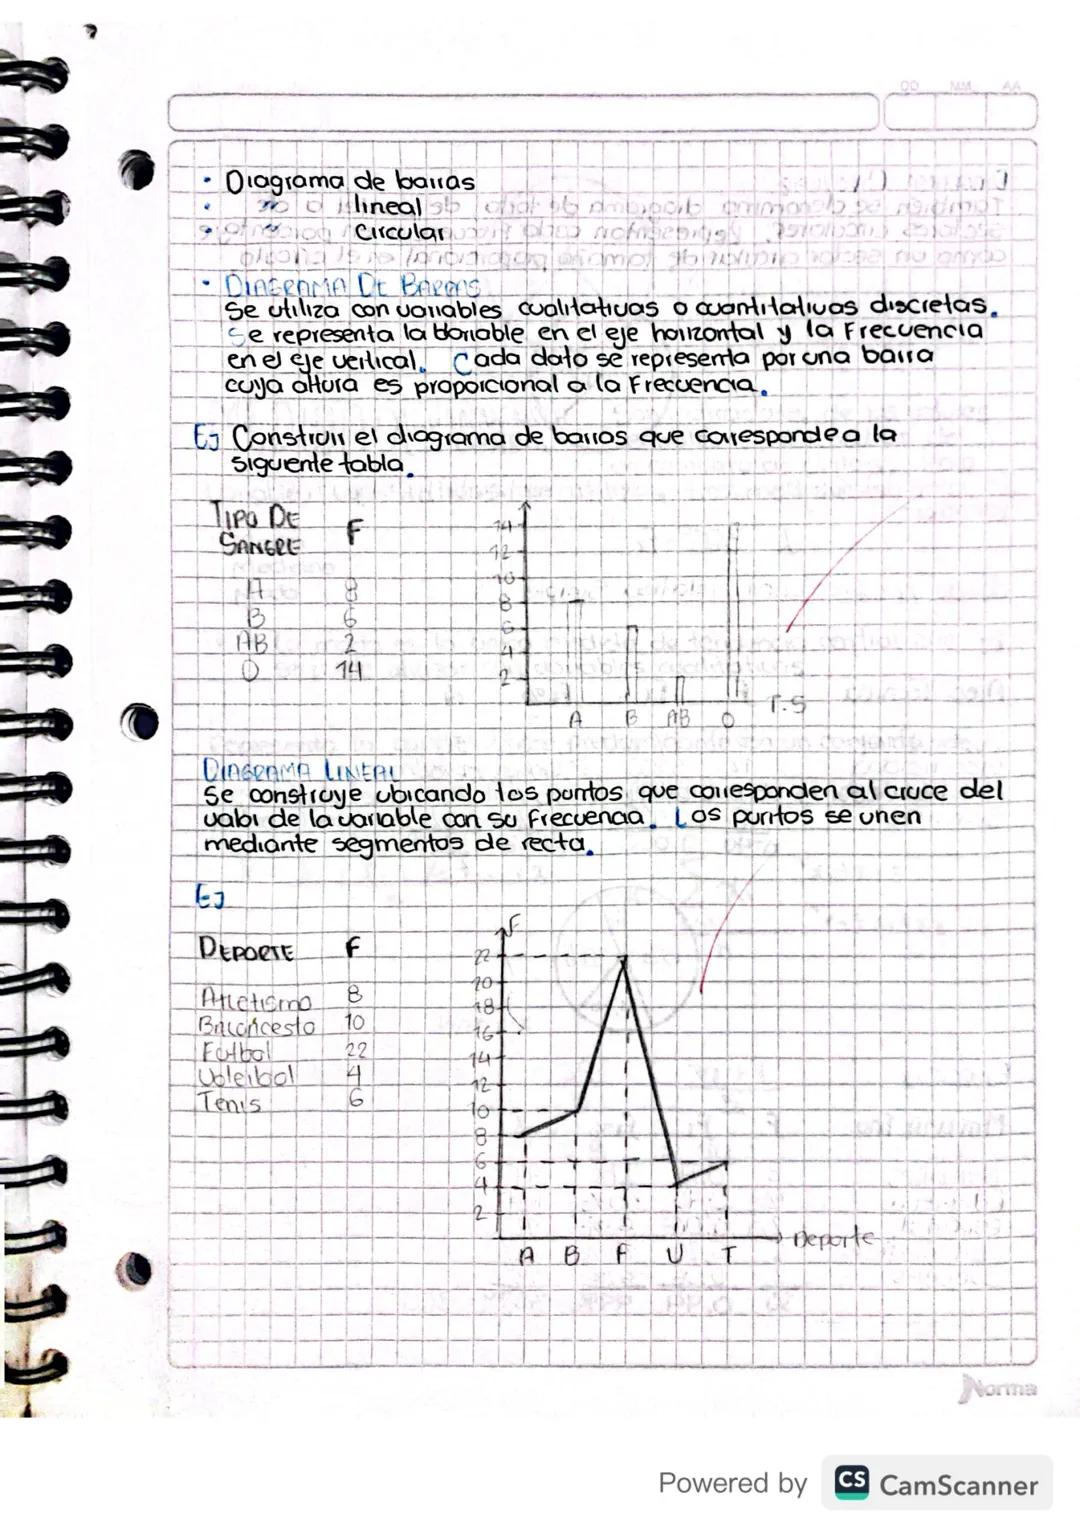 DD MM AA
• Diagrama de barras
• " " lineal
• " " Circular
• DIAGRAMA DE BARRAS
Se utiliza con variables cualitativas o cuantitativas discretas.
Se representa la variable en el eje horizontal y la Frecuencia
en el eje vertical. Cada dato se representa por una barra
cuya altura es proporcional a la Frecuencia.
Ej Construir el diagrama de barras que corresponde a la
siguiente tabla.
TIPO DE
SANGRE F
A 8
B 6
AB 2
O 14
14
12
10
8
6
4
2
A B AB O T.S
DIAGRAMA LINEAL
Se construye ubicando los puntos que corresponden al cruce del
valor de la variable con su Frecuencia. Los puntos se unen
mediante segmentos de recta.
Ej
DEPORTE F
Atletismo 8
Baloncesto 10
Futbol 22
Voleibol 4
Tenis 6
F
22
20
18
16
14
12
10
8
6
4
2
A B F V T Deporte
Norma
Powered by CS CamScanner